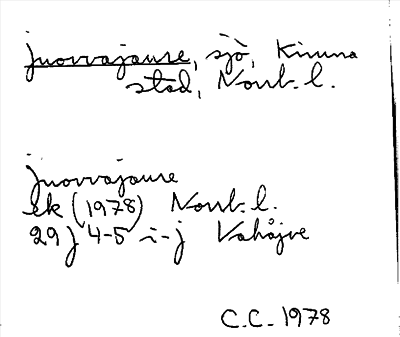 juovvajaure, sjö, Kiruna
stad, Norrb. l.
juovvajaure
ek (1978) Norrb. l.
29J 4-5 i-j Vahåjve
C.C. 1978